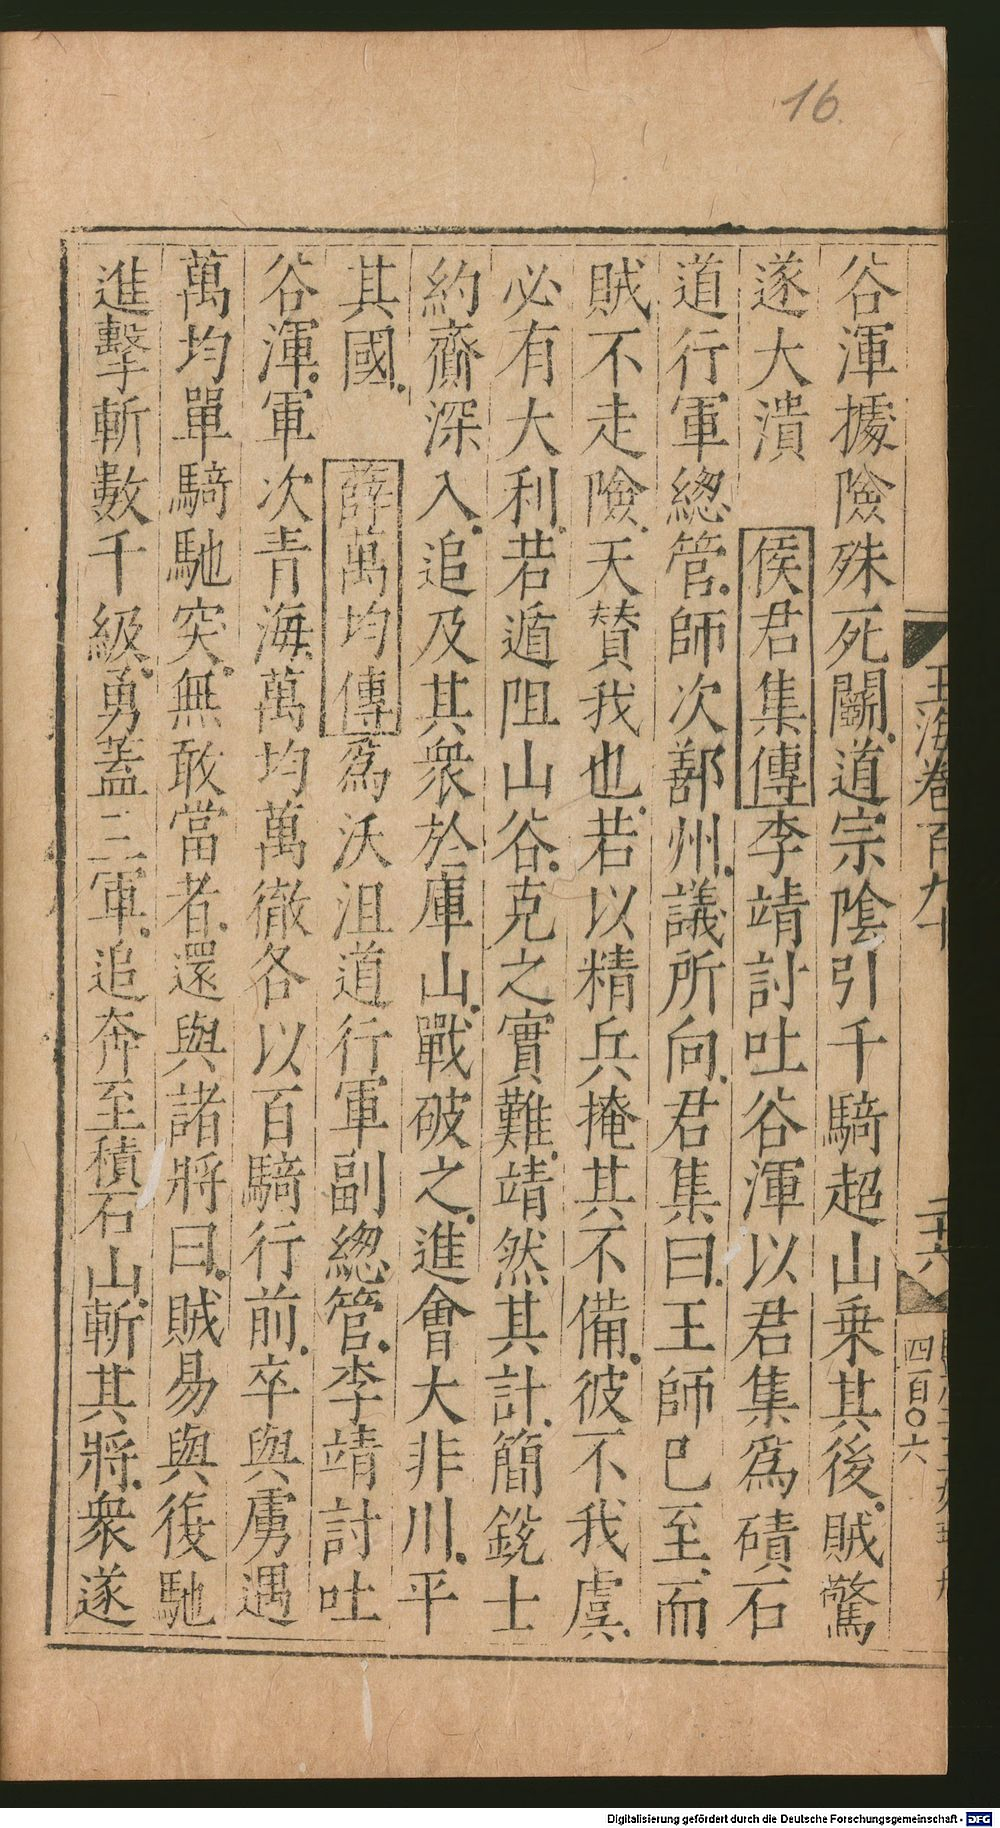 16.
玉海卷百九十
二十六
四百〇六
谷渾據險殊死鬬道宗陰引千騎超山乗其後賊驚
遂大潰 侯君集傳李靖討吐谷渾以君集爲磧石
道行軍緫管師次鄯州議所向君集曰王師已至而
賊不走險天贊我也若以精兵掩其不備彼不我虞
必有大利若遁阻山谷克之實難靖然其計簡銳士
約齎深入追及其衆於庫山戰破之進會大非川平
其國 薛萬均傳爲沃沮道行軍副緫管李靖討吐
谷渾軍次青海萬均萬徹各以百騎行前卒與虜遇
萬均單騎馳突無敢當者還與諸將曰賊易與復馳
進擊斬數千級勇蓋三軍追奔至積石山斬其將衆遂
Digitalisierung gefördert durch die Deutsche Forschungsgemeinschaft - DFG